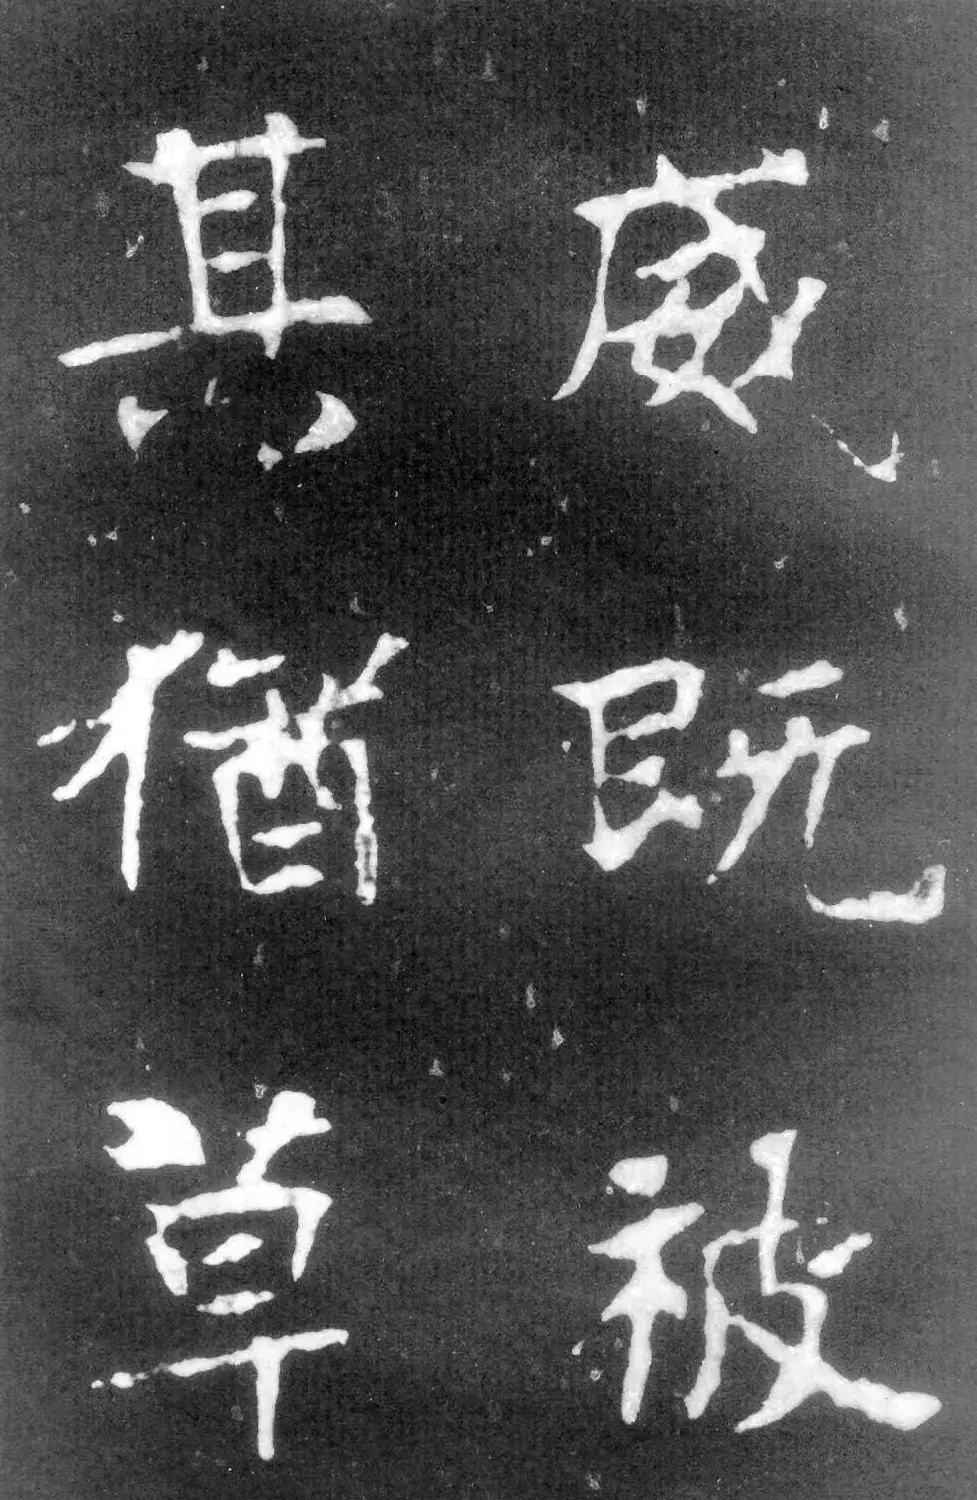 威既被
其猶草